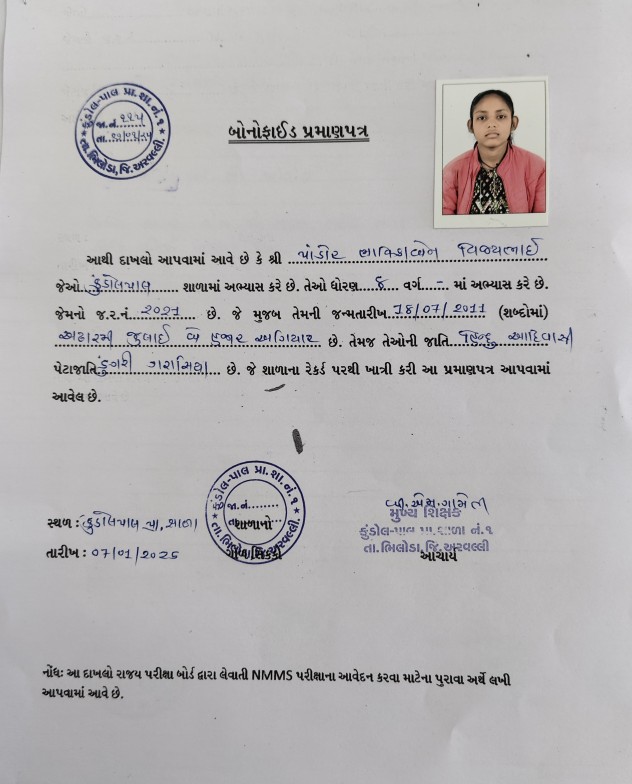 કુંડોલ-પાલ પ્રા.શા.નં.૧
જા.નં.
તા.
તા.ભિલોડા,જિ.અરવલ્લી.
બોનોફાઈડ પ્રમાણપત્ર
આથી દાખલો આપવામાં આવે છે કે શ્રી પાંડોર ભાવિકાબેન વિજયભાઈ
જેઓ કુંડોલપાલ શાળામાં અભ્યાસ કરે છે. તેઓ ધોરણ ૮ વર્ગ - માં અભ્યાસ કરે છે.
જેમનો જ.ર.નં. ૨૦૨૧ છે. જે મુજબ તેમની જન્મતારીખ 18/07/2011 (શબ્દોમાં)
અઢારમી જુલાઈ બે હજાર અગિયાર છે. તેમજ તેઓની જાતિ હિન્દુ આદિવાસી
પેટાજાતિ ડુંગરી ગરાસિયા છે. જે શાળાના રેકર્ડ પરથી ખાત્રી કરી આ પ્રમાણપત્ર આપવામાં
આવેલ છે.
કુંડોલ-પાલ પ્રા.શા.નં.૧
જા.નં.
શાળાનો
તા.ભિલોડા,જિ.અરવલ્લી.
સ્થળ : કુંડોલપાલ પ્રા. શાળા
તારીખ : 07/01/2025
મુખ્ય શિક્ષક
કુંડોલ-પાલ પ્રા.શાળા નં.૧
તા.ભિલોડા,જિ.અરવલ્લી
આચાર્ય
નોંધઃ આ દાખલો રાજય પરીક્ષા બોર્ડ દ્વારા લેવાતી NMMS પરીક્ષાના આવેદન કરવા માટેના પુરાવા અર્થે લખી
આપવામાં આવે છે.